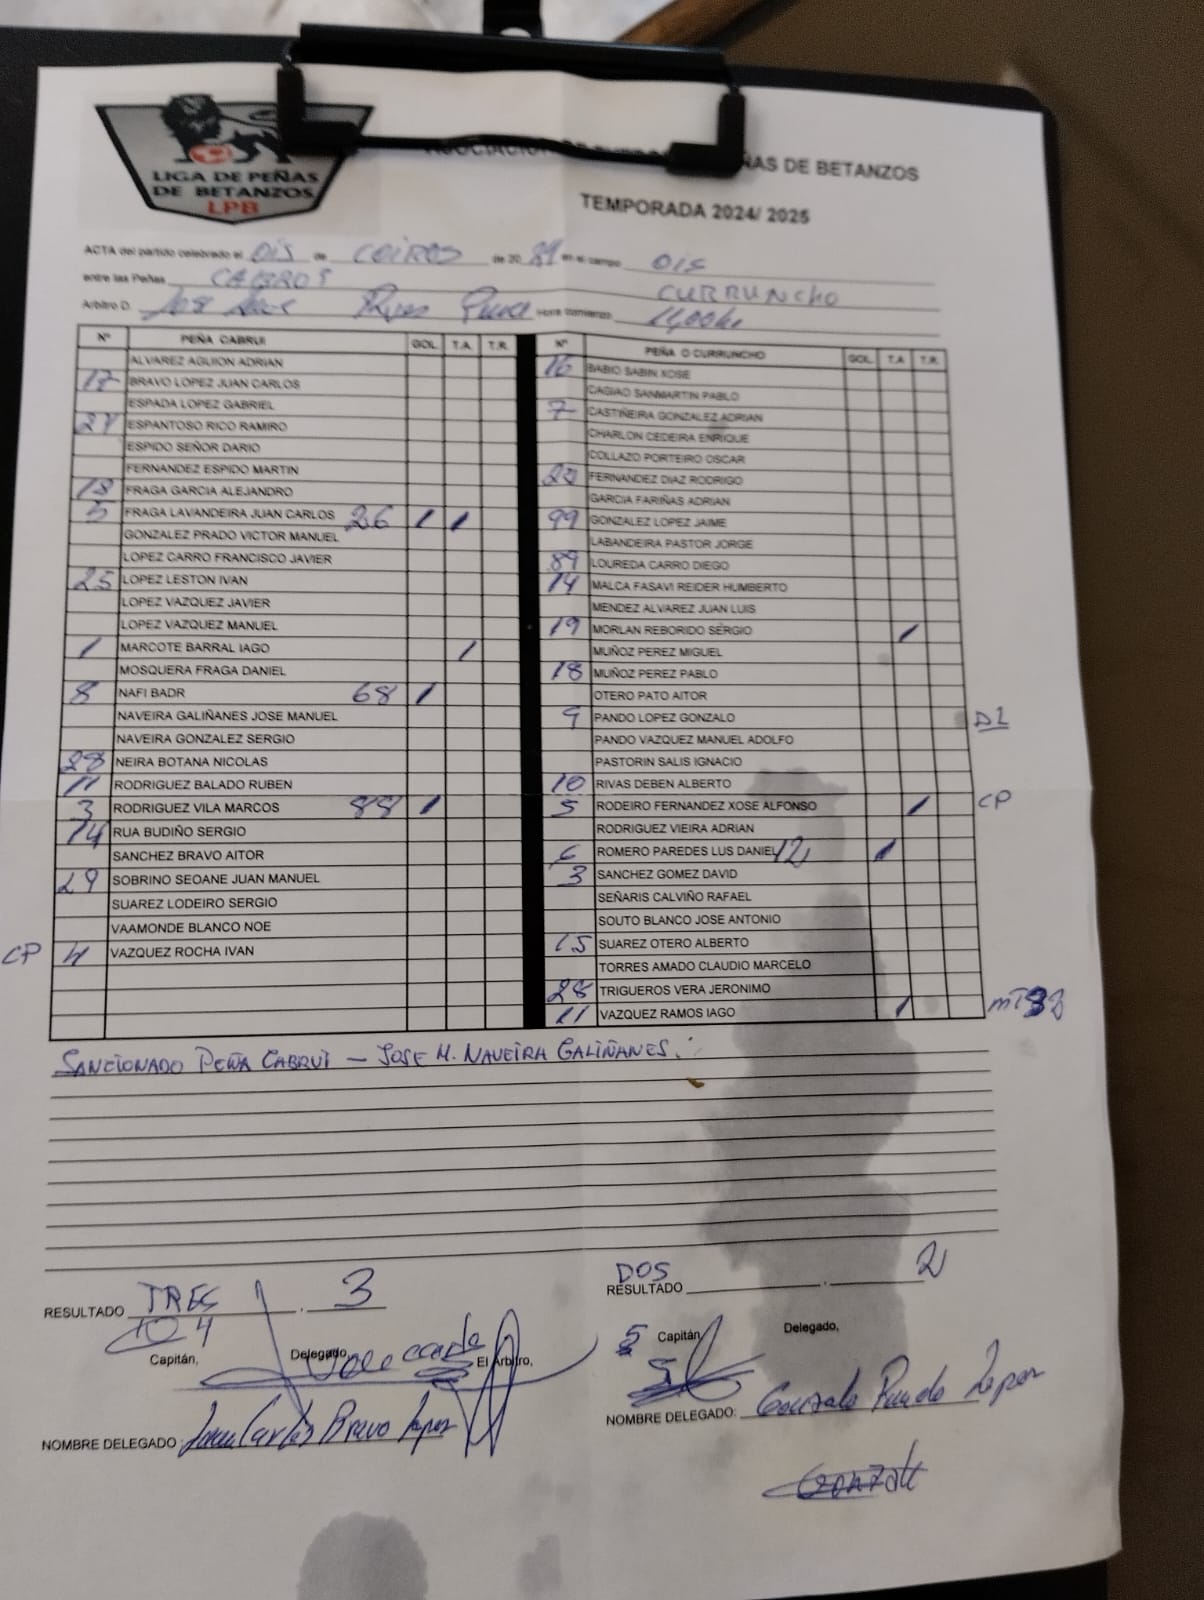 LIGA DE PEÑAS
DE BETANZOS
LPB
PEÑAS DE BETANZOS
TEMPORADA 2024/ 2025
ACTA del partido celebrado el OIS de COIROS de 20 en el campo OIS
entre las Peñas CURRUNCHO
Arbitro D. Hora comienzo
Nº PEÑA CABRUI GOL. T.A. T.R. Nº PEÑA O CURRUNCHO GOL. T.A T.R.
ALVAREZ AGUION ADRIAN 16 BABIO SABIN XOSE
17 BRAVO LOPEZ JUAN CARLOS CAGIAO SANMARTIN PABLO
ESPADA LOPEZ GABRIEL 7 CASTIÑEIRA GONZALEZ ADRIAN
ESPANTOSO RICO RAMIRO CHARLON CEDEIRA ENRIQUE
ESPIDO SEÑOR DARIO COLLAZO PORTEIRO OSCAR
FERNANDEZ ESPIDO MARTIN FERNANDEZ DIAZ RODRIGO
18 FRAGA GARCIA ALEJANDRO GARCIA FARIÑAS ADRIAN
5 FRAGA LAVANDEIRA JUAN CARLOS 26 / / 99 GONZALEZ LOPEZ JAIME
GONZALEZ PRADO VICTOR MANUEL LABANDEIRA PASTOR JORGE
LOPEZ CARRO FRANCISCO JAVIER 89 LOUREDA CARRO DIEGO
25 LOPEZ LESTON IVAN 14 MALCA FASAVI REIDER HUMBERTO
LOPEZ VAZQUEZ JAVIER MENDEZ ALVAREZ JUAN LUIS
LOPEZ VAZQUEZ MANUEL 19 MORLAN REBORIDO SERGIO /
1 MARCOTE BARRAL IAGO / MUÑOZ PEREZ MIGUEL
MOSQUERA FRAGA DANIEL 18 MUÑOZ PEREZ PABLO
8 NAFI BADR 68 / OTERO PATO AITOR
NAVEIRA GALIÑANES JOSE MANUEL 9 PANDO LOPEZ GONZALO
NAVEIRA GONZALEZ SERGIO PANDO VAZQUEZ MANUEL ADOLFO
28 NEIRA BOTANA NICOLAS PASTORIN SALIS IGNACIO
11 RODRIGUEZ BALADO RUBEN 10 RIVAS DEBEN ALBERTO
3 RODRIGUEZ VILA MARCOS 88 / 5 RODEIRO FERNANDEZ XOSE ALFONSO / CP
14 RUA BUDIÑO SERGIO RODRIGUEZ VIEIRA ADRIAN
SANCHEZ BRAVO AITOR 6 ROMERO PAREDES LUS DANIEL 12 /
29 SOBRINO SEOANE JUAN MANUEL 3 SANCHEZ GOMEZ DAVID
SUAREZ LODEIRO SERGIO SEÑARIS CALVIÑO RAFAEL
VAAMONDE BLANCO NOE SOUTO BLANCO JOSE ANTONIO
CP 4 VAZQUEZ ROCHA IVAN 15 SUAREZ OTERO ALBERTO
TORRES AMADO CLAUDIO MARCELO
28 TRIGUEROS VERA JERONIMO
11 VAZQUEZ RAMOS IAGO /
SANCIONADO PEÑA CABRUI - JOSE M. NAVEIRA GALIÑANES.
RESULTADO TRES . 3 RESULTADO DOS . 2
Capitán, Delegado, El Arbitro, Capitán Delegado,
NOMBRE DELEGADO : Juan Carlos Bravo Lopez NOMBRE DELEGADO: Gonzalo Pando Lopez